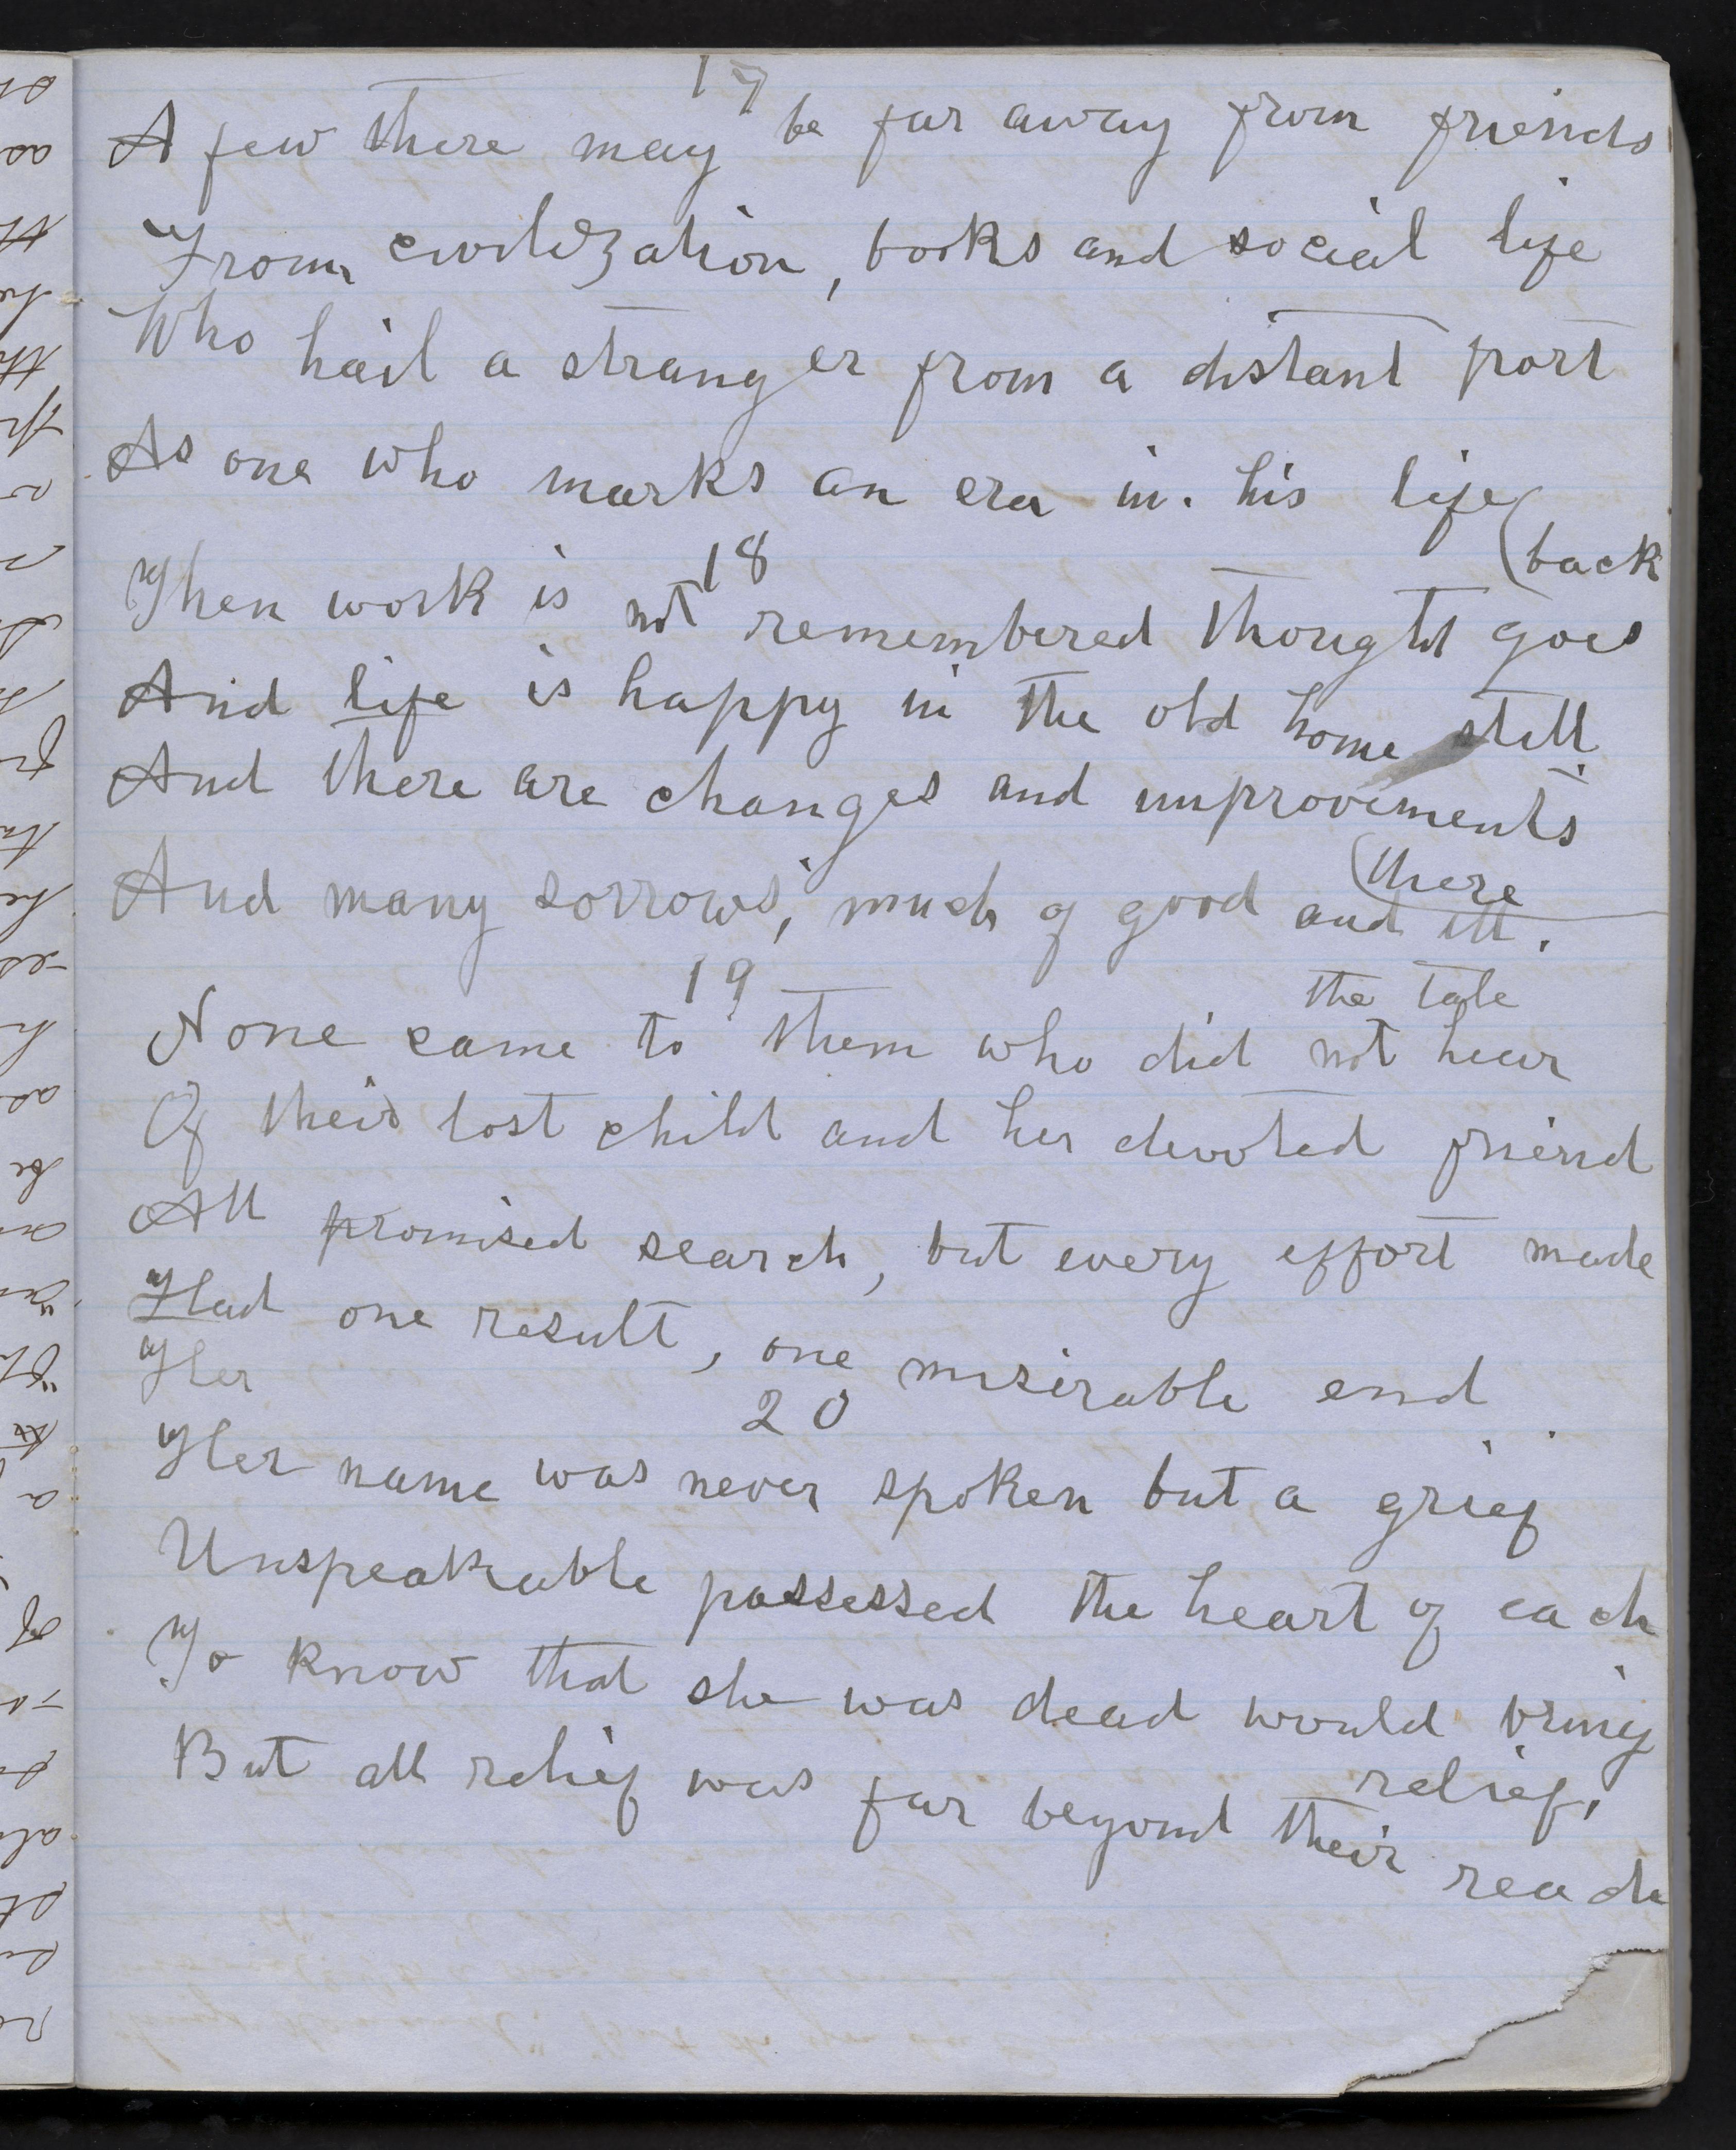 17
A few there may be far away from friends
From civilization, books and social life
Who hail a stranger from a distant port
As one who marks an era in his life
18
(back
Then work is not remembered thought goes
And life is happy in the old home still.
And there are changes and improvements
(there
And many sorrows, much of good and ill.
19
the tale
None came to them who did not hear
Of their lost child and her devoted friend
All promised search, but every effort made
Had one result, one miserable end
Her
20
Her name was never spoken but a grief
Unspeakable possessed the heart of each
To know that she was dead would bring
relief,
But all relief was far beyond their reach